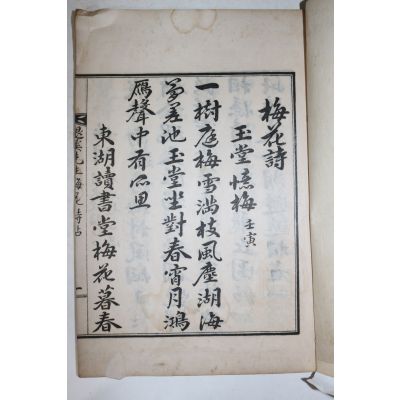 梅花詩
玉堂憶梅 壬寅
一樹庭梅雪滿枝風塵湖海
夢差池玉堂坐對春宵月鴻
鴈聲中有所思
東湖讀書堂梅花暮春
退溪先生梅花詩帖 一